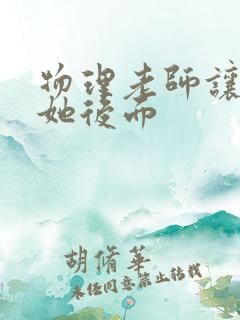 物理老師讓
她後而
胡脩華
未经同意禁止转载